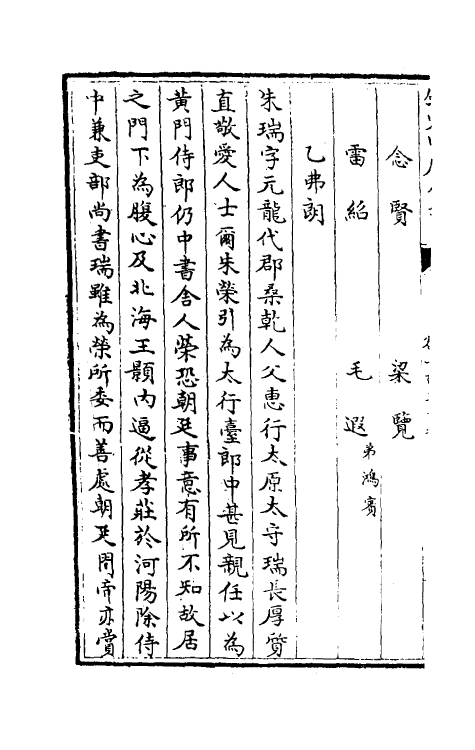 念賢　梁覽
雷紹　毛遐弟鴻賓
乙弗朗
朱瑞字元龍代郡桑乾人父惠行太原太守瑞長厚質
直敬愛人士爾朱榮引為大行臺郎中甚見親任以為
黃門侍郎仍中書舍人榮恐朝廷事意有所不知故居
之門下為腹心及北海王顥內逼從孝莊於河陽除侍
中兼吏部尚書瑞雖為榮所委而善處朝廷間帝亦賞